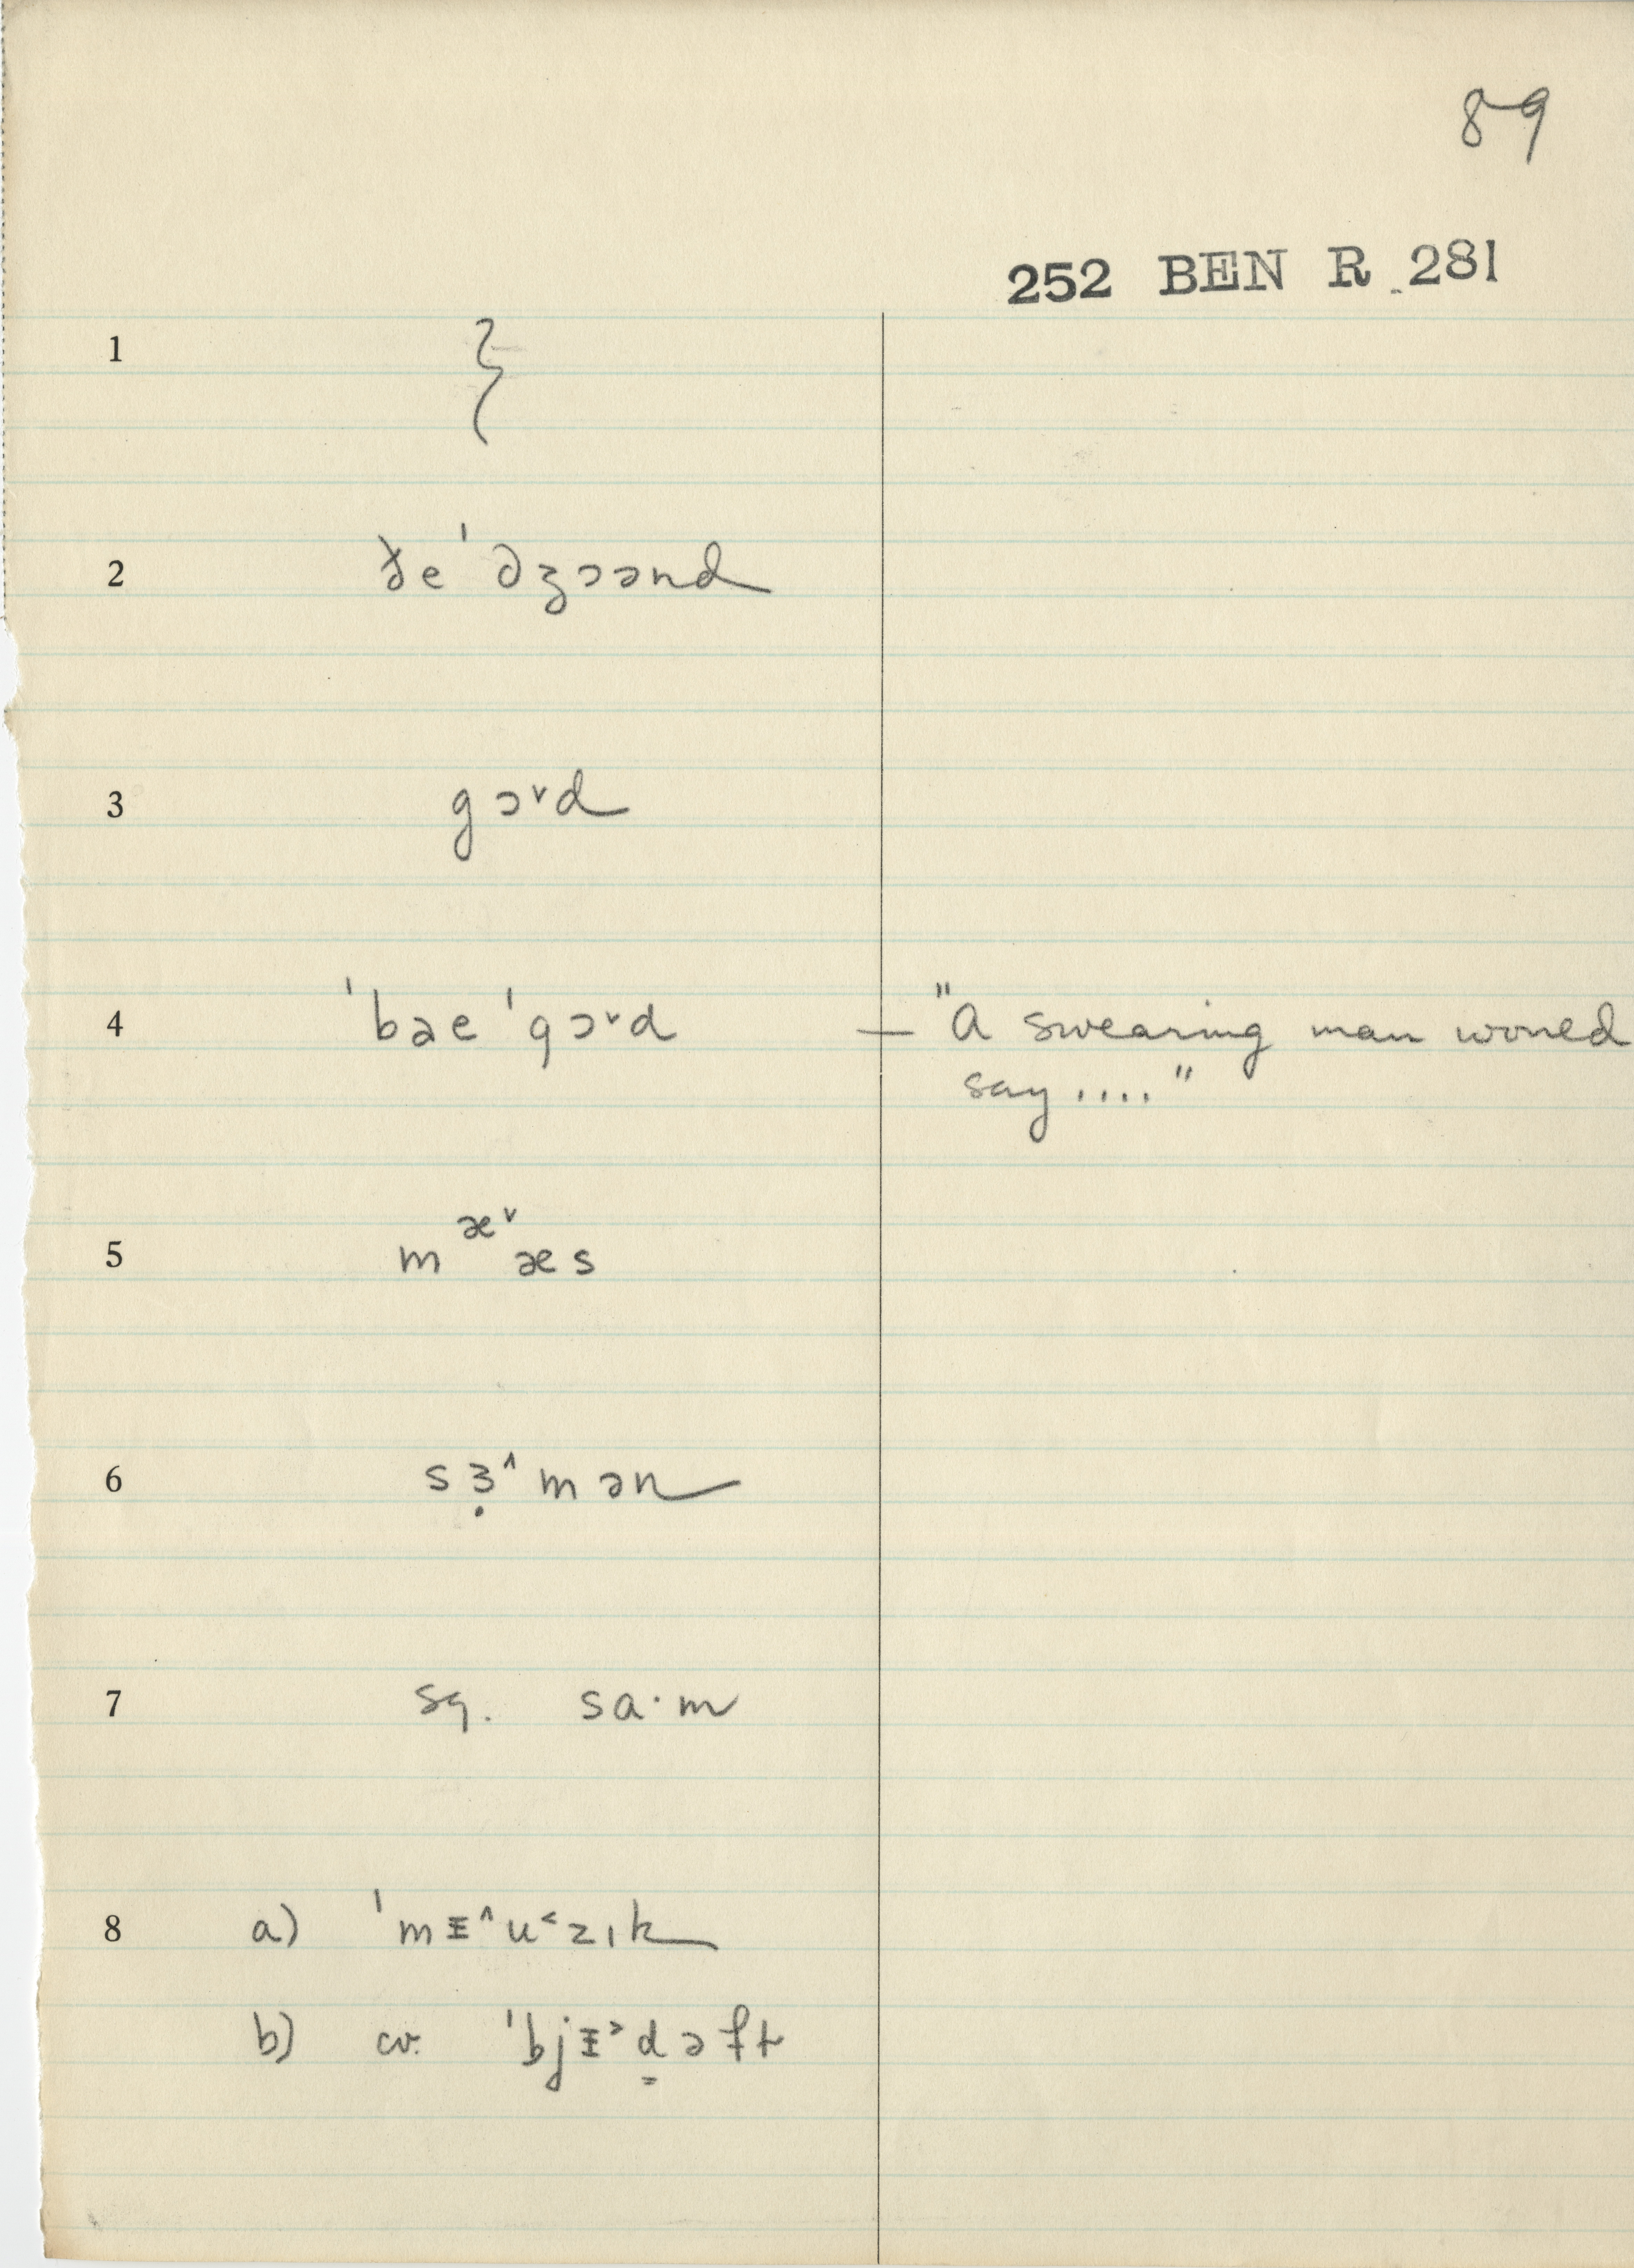 89
252 BEN R 281
1 ⸾
2 ðe ˈdʒɔənd
3 gɔ˅d
4 ˈbæe ˈgɔ˅d — "A swearing man would
say...."
5 m æ˅ æs
6 sɜ̣^mən
7 sq. sa·m
8 a) ˈmᵻ^u˂zɪk
b) cv. ˈbjᵻ˃d̳əft